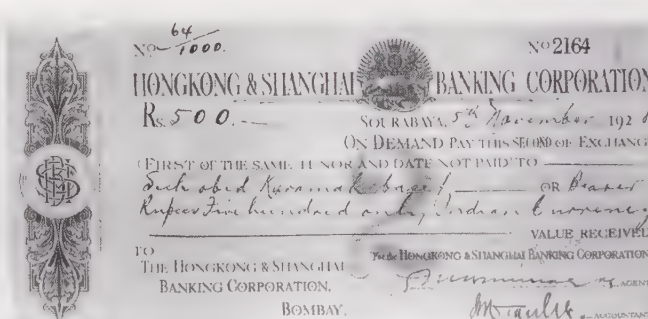 No 64/1000.
No 2164
HONGKONG & SHANGHAI BANKING CORPORATION
Rs. 500.—
SOURABAYA, 5th November 192
ON DEMAND PAY THIS SECOND OF EXCHANGE
(FIRST OF THE SAME TENOR AND DATE NOT PAID) TO
OR Bearer
Rupees Five hundred only, Indian Currency
VALUE RECEIVED
TO
THE HONGKONG & SHANGHAI
BANKING CORPORATION,
BOMBAY.
For the HONGKONG & SHANGHAI BANKING CORPORATION
AGENT
ACCOUNTANT